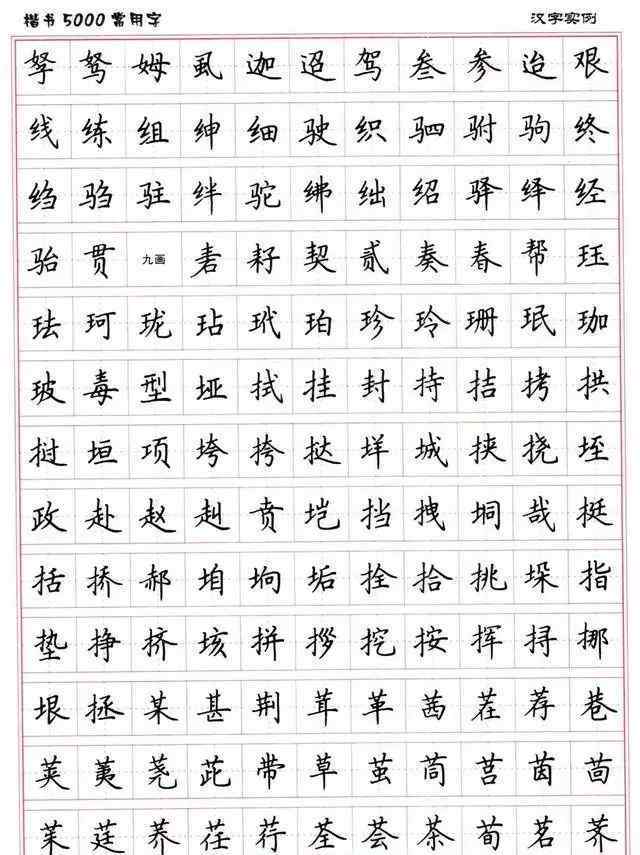 楷书5000常用字 汉字实例
孥 驽 姆 虱 迦 迢 驾 叁 参 迨 艰
线 练 组 绅 细 驶 织 驷 驸 驹 终
绉 驺 驻 绊 驼 绋 绌 绍 驿 绎 经
骀 贯 九画 砉 耔 契 贰 奏 春 帮 珏
珐 珂 珑 玷 玳 珀 珍 玲 珊 珉 珈
玻 毒 型 垭 拭 挂 封 持 拮 拷 拱
挝 垣 项 垮 挎 挞 垟 城 挟 挠 垤
政 赴 赵 赳 贲 垲 挡 拽 垌 哉 挺
括 挢 郝 垍 垧 垢 拴 拾 挑 垛 指
垫 挣 挤 垓 拼 拶 挖 按 挥 挦 挪
垠 拯 某 甚 荆 茸 革 茜 茬 荐 巷
荚 荑 荛 茈 带 草 茧 茼 莒 茵 茴
茱 莛 荞 荏 荇 荃 荟 茶 荀 茗 荠